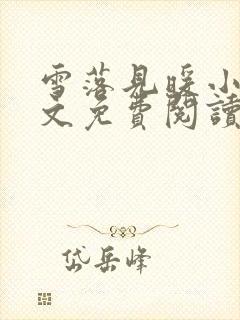 雪落見暖小
文免費閱讀
岱岳峰